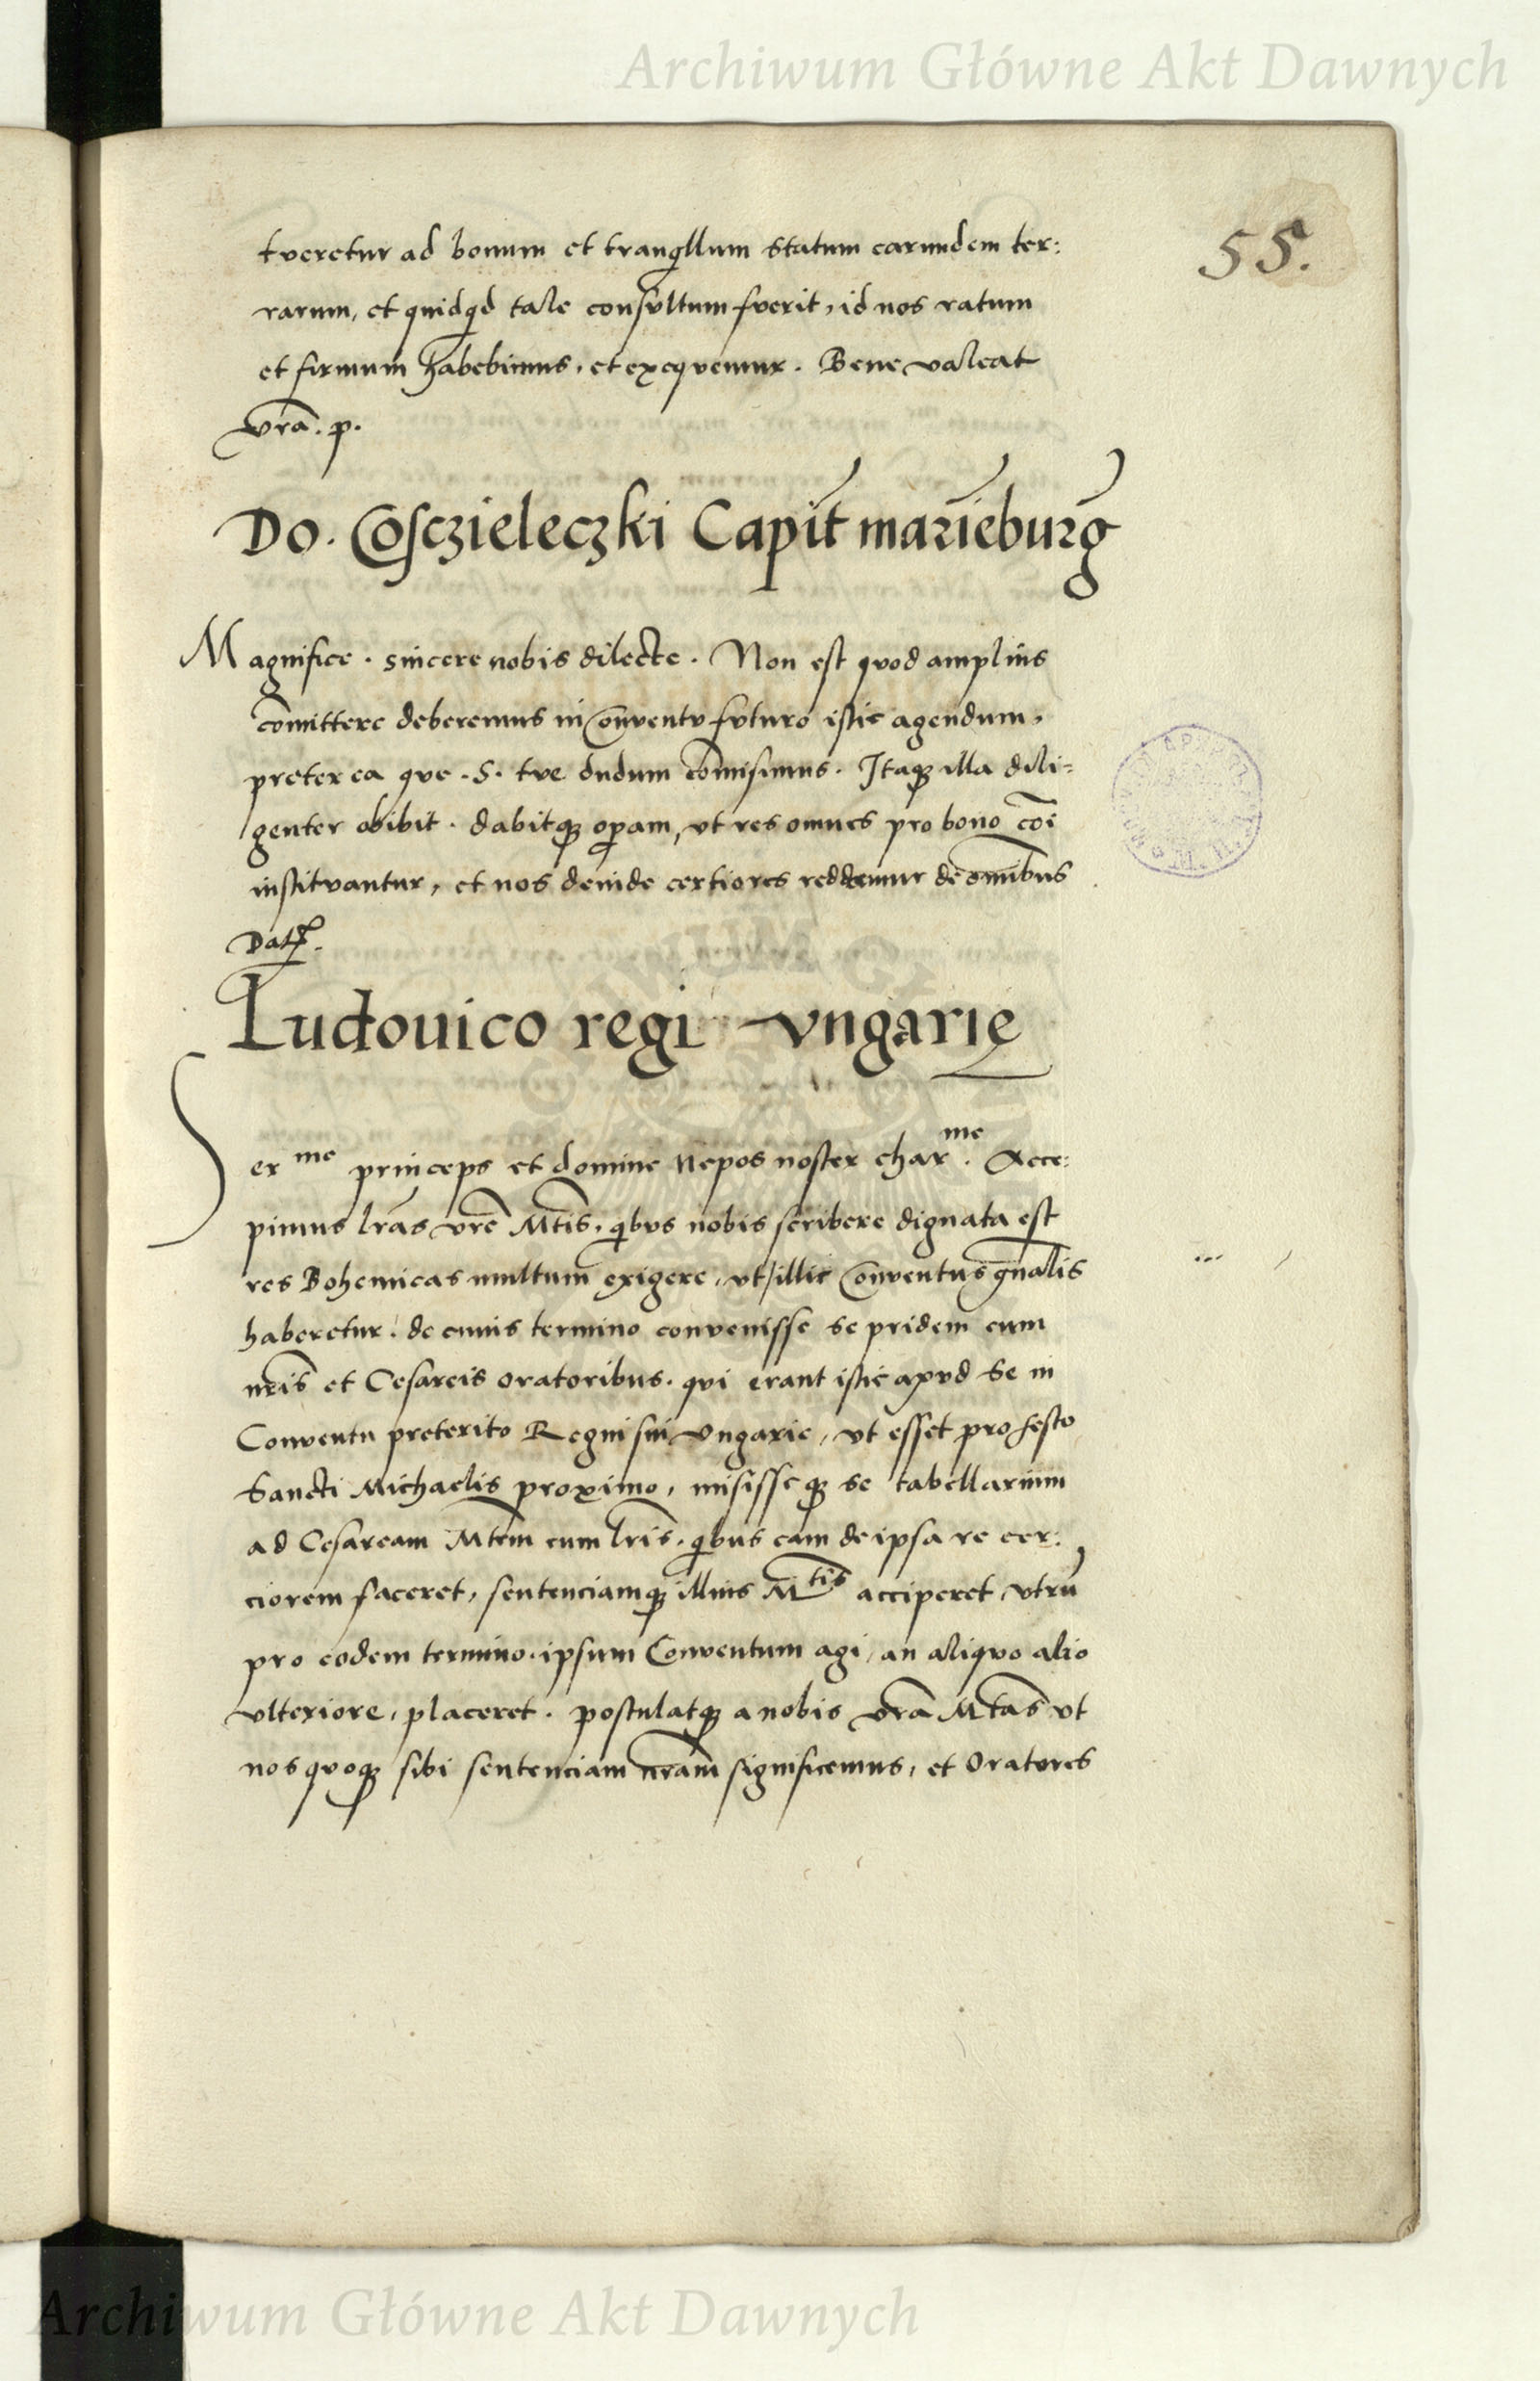 Archiwum Główne Akt Dawnych
55.
tveretur ad bonum et tranqllum statum earundem ter:
rarum, et quidqd tale consvltum fverit, id nos ratum
et firmum habebimus, et exeqvemur. Bene valeat
vrã. p.
Do. Cosczieleczki Capit̃ marieburg̃
Magnifice. sincere nobis dilecte. Non est qvod amplius
cõmittere deberemus in Conventv fvturo istic agendum,
preter ea qve .S. tve dudum cõmisimus. Itaqȝ illa dili=
genter obibit. dabitqȝ opam, vt res omnes pro bono cõi
institvantur, et nos deinde certiores reddemur de omñibus
Datȝ.
Ludouico regi vngarię
Ser me princeps et domine Nepos noster char me. Acce:
pimus lrãs vrẽ Mtĩs, qibvs nobis scribere dignata est
res Bohemicas multum exigere, vt illic Conventus gñalis
haberetur. de cuius termino convenisse se pridem cum
nrĩs et Cesareis oratoribus. qvi erant istic apvd se in
Conventu preterito Regni sui vngarie, vt esset pro festo
Sancti Michaelis proximo, misisseqȝ se tabellarium
ad Cesaream Mtẽm cum lrĩs. qibus eam de ipsa re cer:
ciorem faceret, sentenciamqȝ illius M tis acciperet vtrũ
pro eodem termino. ipsum Conventum agi, an aliqvo alio
vlteriore, placeret. postulatqȝ a nobis vrã Mtãs vt
nos qvoqȝ sibi sentenciam nrãm significemus, et Oratores
Archiwum Główne Akt Dawnych